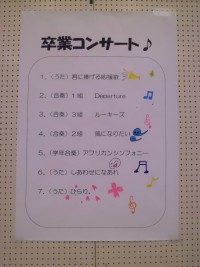 卒業コンサート♪
1、(うた)君に捧げる応援歌
2、(合奏)1組　Departure
3、(合奏)3組　ルーキーズ
4、(合奏)2組　風になりたい
5、(学年合奏)アフリカンシンフォニー
6、(うた)しあわせになあれ
7、(うた)ひらり、